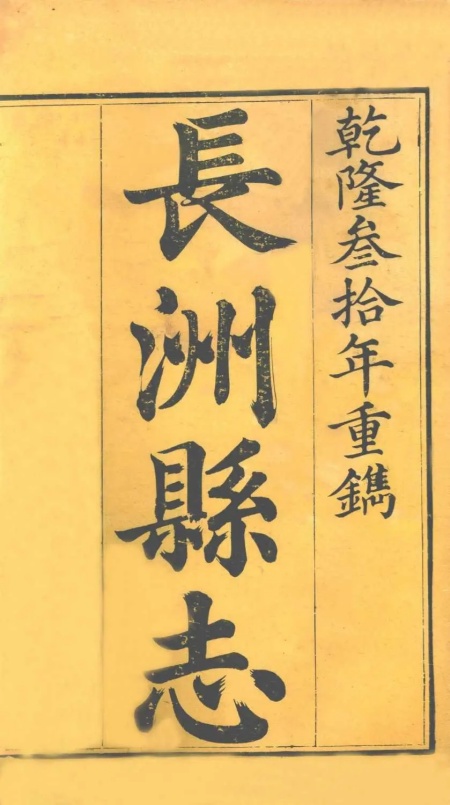 乾隆叄拾年重鐫
長洲縣志